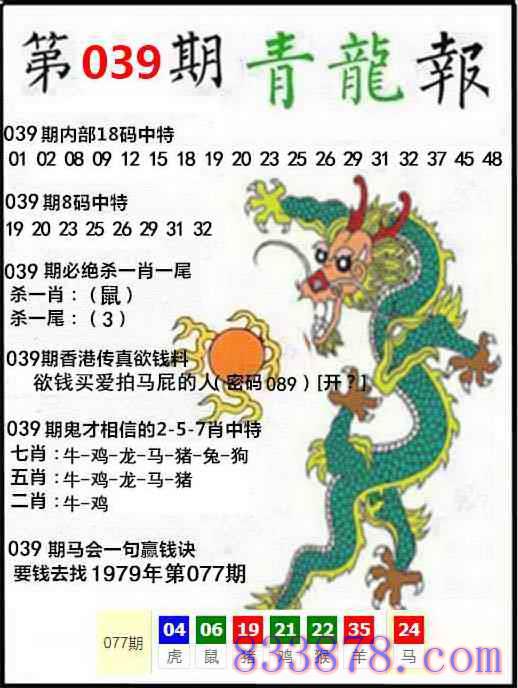 第039期青龍報
039期内部18码中特
01 02 08 09 12 15 18 19 20 23 25 26 29 31 32 37 45 48
039期8码中特
19 20 23 25 26 29 31 32
039 期必绝杀一肖一尾
杀一肖：（鼠）
杀一尾：（3）
039期香港传真欲钱料
欲钱买爱拍马屁的人(密码089) [开？]
039期鬼才相信的2-5-7肖中特
七肖：牛-鸡-龙-马-猪-兔-狗
五肖：牛-鸡-龙-马-猪
二肖：牛-鸡
039 期马会一句赢钱诀
要钱去找1979年第077期
077期 04 06 19 21 22 35 24
虎 鼠 猪 鸡 猴 羊 马
833878.com